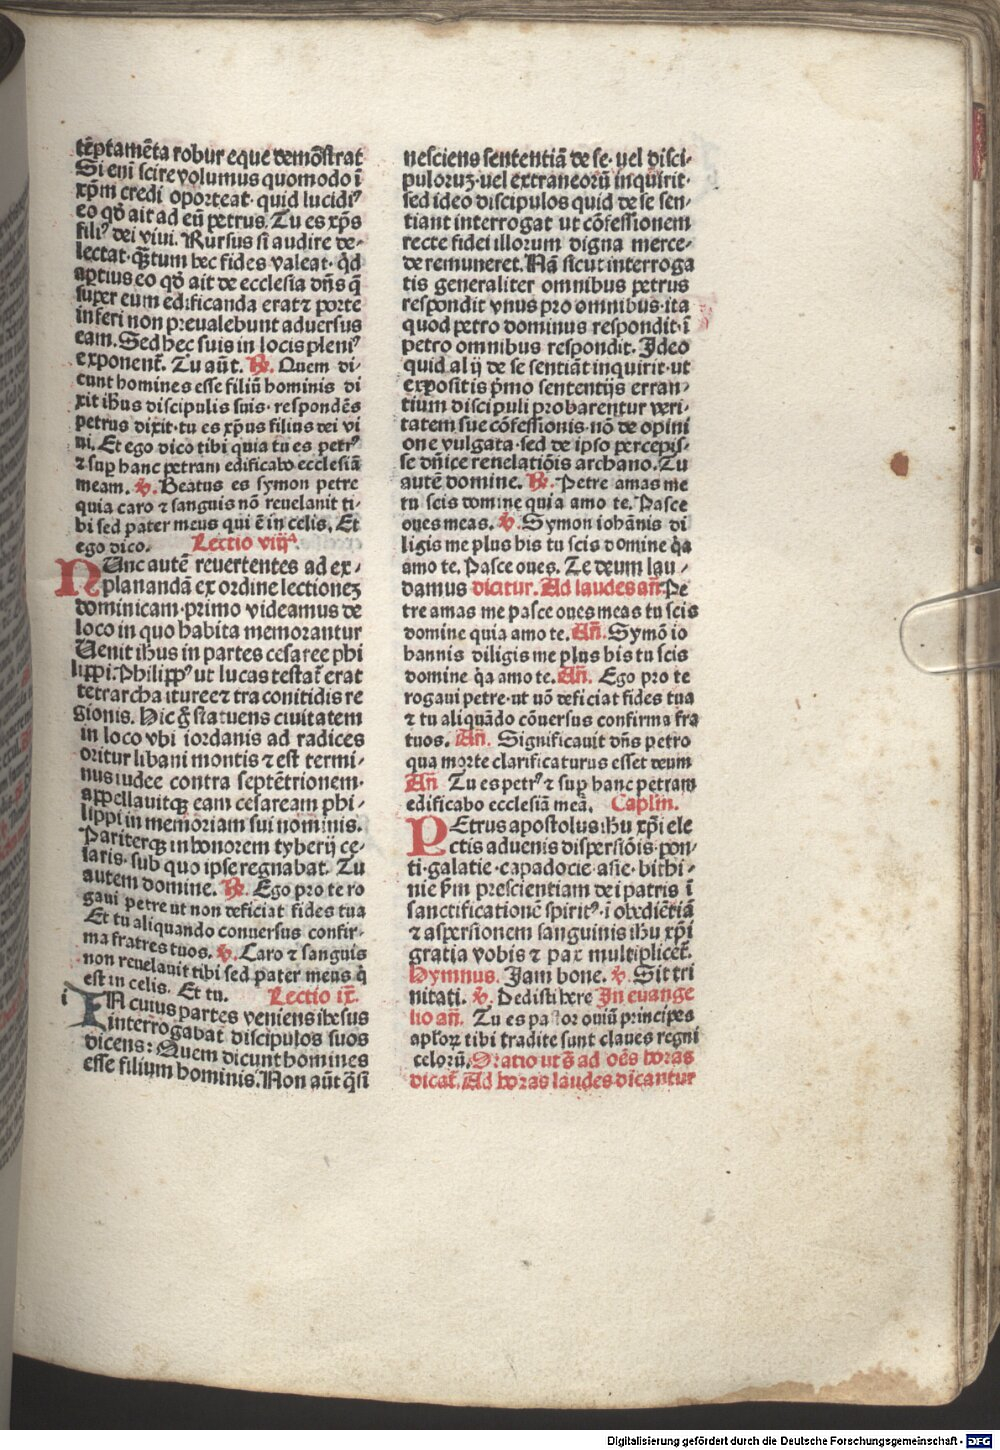 tēptamēta robur eque demōstrat
Si eni̅ scire volumus quomodo ī
xp̅m credi oporteat· quid lucidiꝰ
eo qd̕ ait ad eū petrus. Tu es xp̅s
filiꝰ dei viui. Rursus si audire de⸗
lectat· q̅tum hec fides valeat· qd̕
aptius eo qd̕ ait de ecclesia dn̅s q̅
super eum edificanda erat ⁊ porte
inferi non preualebunt aduersus
eam. Sed hec suis in locis pleniꝰ
exponent̄. Tu aūt. ℟. Quem di⸗
cunt homines esse filiū hominis di
xit ih̅us discipulis suis· respondēs
petrus dixit· tu es xp̅us filius dei vi
ui. Et ego dico tibi quia tu es petrꝰ
⁊ sup̱ hanc petram edificabo ecclesiā
meam. ℣. Beatus es symon petre
quia caro ⁊ sanguis nō reuelauit ti⸗
bi sed pater meus qui ē in celis. Et
ego dico. Lectio viijᵃ.
NUnc autē reuertentes ad ex⸗
planandā ex ordine lectionez
dominicam· primo videamus de
loco in quo habita memorantur
Uenit ih̅us in partes cesaree phi
lippi. Philippꝰ ut lucas testat̄ erat
tetrarcha ituree ⁊ traconitidis re
gionis. Hic g̊ statuens ciuitatem
in loco vbi iordanis ad radices
oritur libani montis ⁊ est termi⸗
nus iudee contra septētrionem·
appellauitqꝫ eam cesaream phi⸗
lippi in memoriam sui nominis.
Pariterqꝫ in honorem tyberij ce⸗
saris· sub quo ipse regnabat. Tu
autem domine. ℟. Ego pro te ro
gaui petre ut non deficiat fides tua
Et tu aliquando conuersus confir⸗
ma fratres tuos. ℣. Caro ⁊ sanguis
non reuelauit tibi sed pater meus q̇
est in celis. Et tu. Lectio ix̄.
i IN cuius partes veniens ihesus
interrogabat discipulos suos
dicens: Quem dicunt homines
esse filium hominis. Non aūt q̅si
nesciens sententiā de se· uel disci⸗
puloruꝫ· uel extraneorū inquirit·
sed ideo discipulos quid de se sen⸗
tiant interrogat ut cōfessionem
recte fidei illorum digna merce⸗
de remuneret. Nā sicut interroga
tis generaliter omnibus petrus
respondit vnus pro omnibus· ita
quod petro dominus respondit· ī
petro omnibus respondit. Ideo
quid alij de se sentiāt inquirit· ut
expositis p̱mo sententijs erran⸗
tium discipuli probarentur veri⸗
tatem sue cōfessionis· nō de opini
one vulgata· sed de ipso percepis⸗
se dn̅ice reuelatiōis archano. Tu
autē domine. ℟. Petre amas me
tu scis domine quia amo te. Pasce
oues meas. ℣. Symon iohānis di
ligis me plus his tu scis domine q̇a
amo te. Pasce oues. Te deum lau⸗
damus dicitur. Ad laudes an̅. Pe
tre amas me pasce oues meas tu scis
domine quia amo te. An̅. Symō io
hannis diligis me plus his tu scis
domine q̇a amo te. An̅. Ego pro te
rogaui petre· ut nō deficiat fides tua
⁊ tu aliquādo cōuersus confirma fra
tuos. An̅. Significauit dn̅s petro
qua morte clarificaturus esset deum
An̅ Tu es petrꝰ ⁊ sup̱ hanc petram
edificabo ecclesiā meā. Caplm̅.
PEtrus apostolus ih̅u xp̅i ele
ctis aduenis dispersiōis· pon⸗
ti· galatie· capadocie· asie· bithi⸗
nie sm̅ prescientiam dei patris ī
sanctificationē spiritꝰ· ī obediētiā
⁊ aspersionem sanguinis ih̅u xp̅i
gratia vobis ⁊ pax multiplicet̄.
Hymnus. Jam bone. ℣. Sit tri
nitati. ℣. Dedisti here In euange
lio an̅. Tu es pastor ouiū princeps
apl̅oꝝ tibi tradite sunt claues regni
celorū. Oratio ut s̄ ad oēs horas
dicat̄. Ad horas laudes dicantur
Digitalisierung gefördert durch die Deutsche Forschungsgemeinschaft - DFG